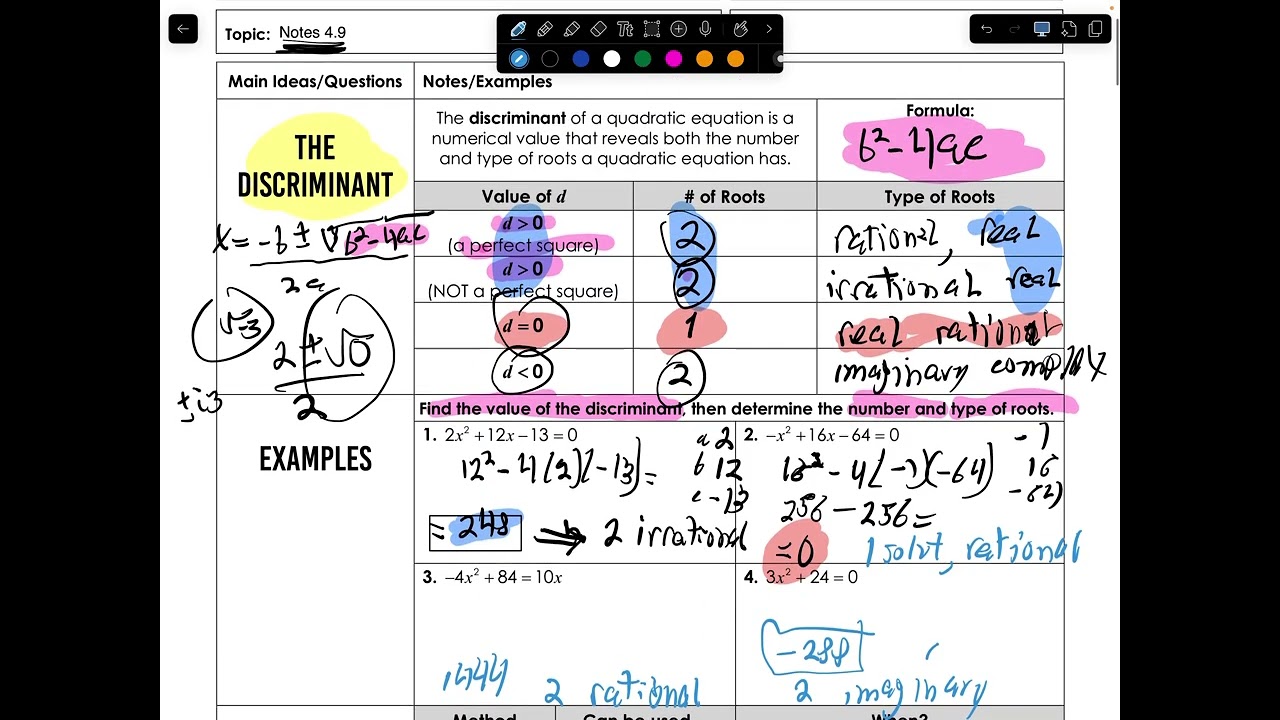 Topic: Notes 4.9
Tt
Main Ideas/Questions
Notes/Examples
THE DISCRIMINANT
The discriminant of a quadratic equation is a
numerical value that reveals both the number
and type of roots a quadratic equation has.
Formula:
b² - 4ac
Value of d
# of Roots
Type of Roots
d > 0
(a perfect square)
2
rational, real
d > 0
(NOT a perfect square)
2
irrational real
d = 0
1
real rational
d < 0
2
imaginary complex
x = -b ± √b² - 4ac
2a
√-3
2 ± √0
2
± i3
Find the value of the discriminant, then determine the number and type of roots.
EXAMPLES
1. 2x² + 12x − 13 = 0
a 2
b 12
c -13
12² - 4(2)(-13) =
= 248 ⇒ 2 irrational
2. −x² + 16x − 64 = 0
-1
16
-64
16² - 4(-1)(-64)
256 - 256 =
= 0
1 solut, rational
3. −4x² + 84 = 10x
1444
2 rational
4. 3x² + 24 = 0
-288
2 imaginary
Method
Can be used
When?